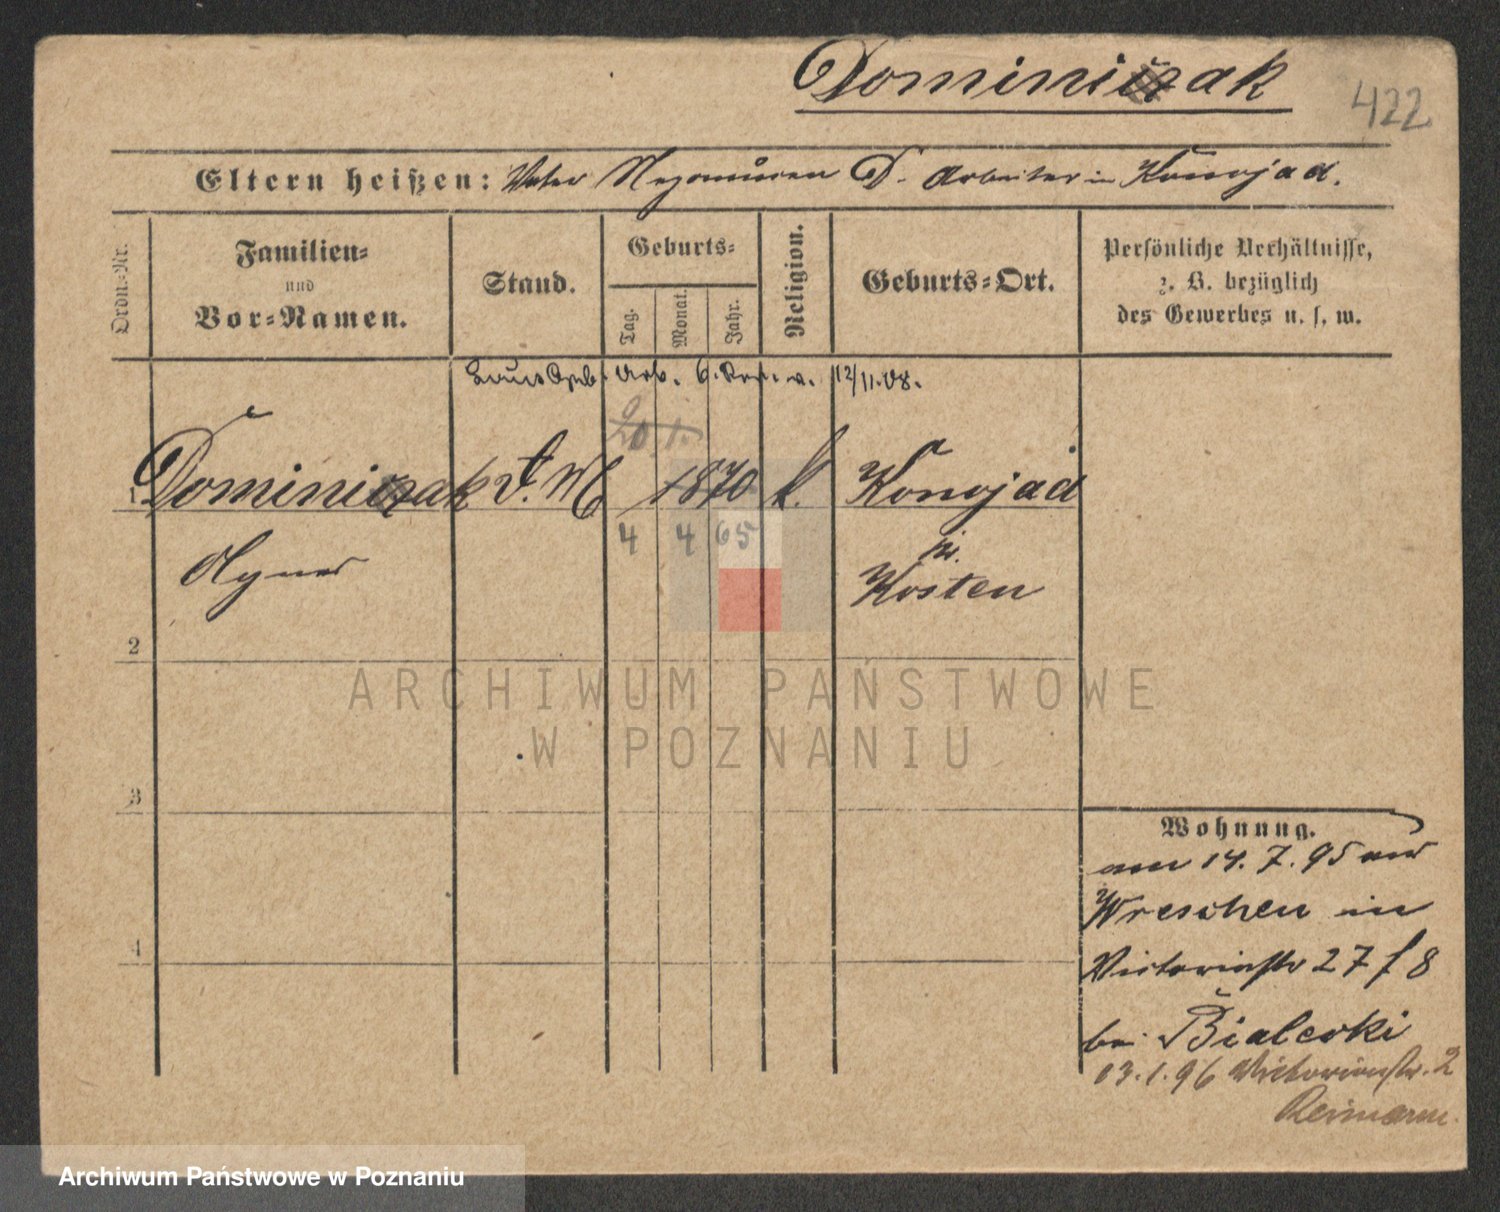 Dominiczak
422
Eltern heißen: Vater Nepomucen D. Arbeiter in Konojad.
Ordn.-Nr.
Familien-
und
Vor-Namen.
Stand.
Geburts-
Tag.
Monat.
Jahr.
Religion.
Geburts-Ort.
Persönliche Verhältnisse,
z. B. bezüglich
des Gewerbes u. s. w.
Laut Geb. Urk. 12/11.08.
20 1.
1 Dominiczak d. M 1870 k. Konojad
4 4 65
Agnes
pr.
Kosten
2
3
4
Wohnung.
am 14. 7. 95 aus
Wreschen in
Victoriastr 27 f 8
bei Bialecki
13.1.96 Victoriastr. 2
Reimann.
ARCHIWUM PAŃSTWOWE
W POZNANIU
Archiwum Państwowe w Poznaniu